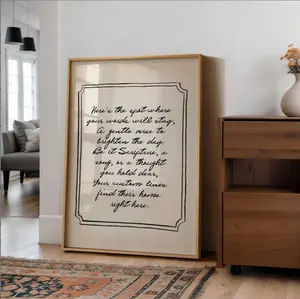 Here's the spot where
your words will stay,
A gentle verse to
brighten the day.
Be it Scripture, a
song, or a thought
you hold dear,
Your custom lines
find their home
right here.